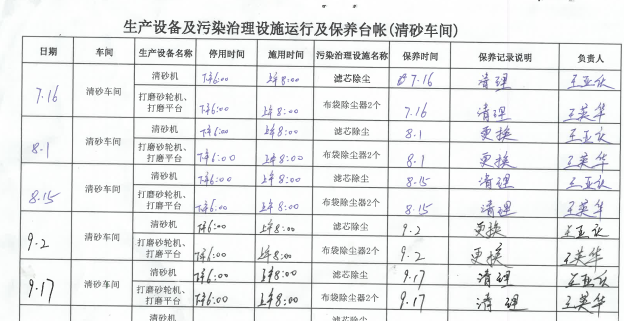 生产设备及污染治理设施运行及保养台帐(清砂车间)
日期 车间 生产设备名称 停用时间 施用时间 污染治理设施名称 保养时间 保养记录说明 负责人
7.16 清砂车间 清砂机 下午6:00 上午8:00 滤芯除尘 7.16 清理
打磨砂轮机、打磨平台 下午6:00 上午8:00 布袋除尘器2个 7.16 清理 王英华
8.1 清砂车间 清砂机 下午6:00 上午8:00 滤芯除尘 8.1 更换
打磨砂轮机、打磨平台 下午6:00 上午8:00 布袋除尘器2个 8.1 更换 王英华
8.15 清砂车间 清砂机 下午6:00 上午8:00 滤芯除尘 8.15 清理
打磨砂轮机、打磨平台 下午6:00 上午8:00 布袋除尘器2个 8.15 清理 王英华
9.2 清砂车间 清砂机 下午6:00 上午8:00 滤芯除尘 9.2 更换
打磨砂轮机、打磨平台 下午6:00 上午8:00 布袋除尘器2个 9.2 更换 王英华
9.17 清砂车间 清砂机 下午6:00 上午8:00 滤芯除尘 9.17 清理
打磨砂轮机、打磨平台 下午6:00 上午8:00 布袋除尘器2个 9.17 清理 王英华